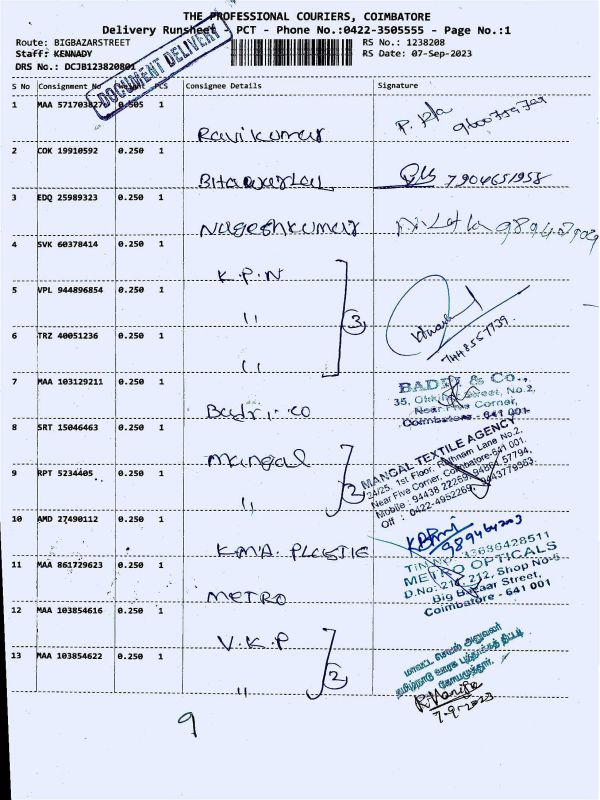 THE PROFESSIONAL COURIERS, COIMBATORE
Delivery Runsheet - PCT - Phone No.:0422-3505555 - Page No.:1
Route: BIGBAZARSTREET RS No.: 1238208
Staff: KENNADY RS Date: 07-Sep-2023
DRS No.: DCJB123820801
DOCUMENT DELIVERY
S No Consignment No Weight PCS Consignee Details Signature
1 MAA 571703827 0.505 1 Ravikumar
2 COK 19910592 0.250 1 7904651958
3 EDQ 25989323 0.250 1 Nageshkumar
4 SVK 60378414 0.250 1 K.P.N
5 VPL 944896854 0.250 1 ,, 3
6 TRZ 40051236 0.250 1 ,, 7448557739
7 MAA 103129211 0.250 1 Badri.co
BADRI & Co.,
35, Street, No.2,
Near Five Corner,
Coimbatore - 641 001
8 SRT 15046463 0.250 1 Mangal
9 RPT 5234405 0.250 1 ,, 2
MANGAL TEXTILE AGENCY
24/25, 1st Floor, Rathnam Lane No.2,
Near Five Corner, Coimbatore-641 001.
Mobile : 94438 22269, 94864 57794,
Off : 0422-4952269, 9443779563.
10 AMD 27490112 0.250 1 K.M.A. PLASTIC
11 MAA 861729623 0.250 1 METRO
METRO OPTICALS
D.No: 211, 212, Shop No-6
Big Bazaar Street,
Coimbatore - 641 001
12 MAA 103854616 0.250 1 V.K.P
13 MAA 103854622 0.250 1 ,, 2
7-9-2023
9